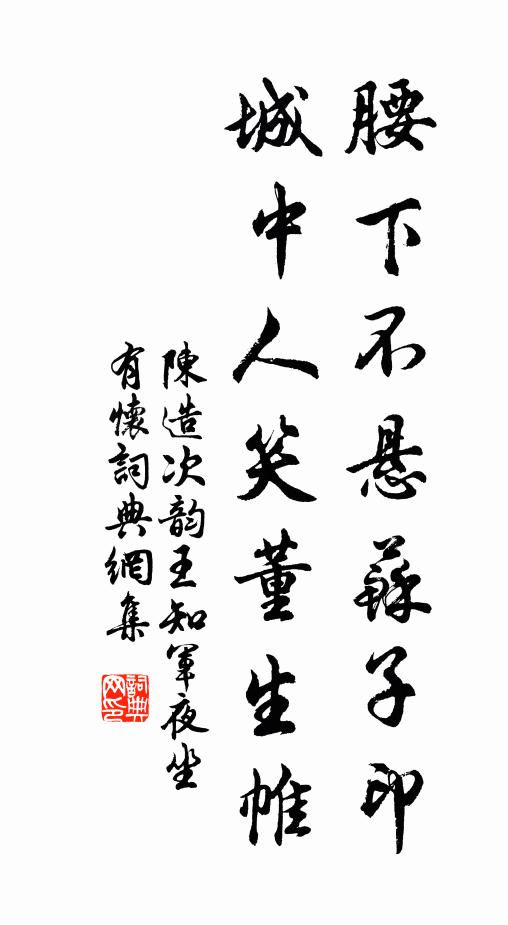 腰下不悬蘇子印
城中人笑董生帷
陳造次韵王知軍夜坐
有懷詞典網集
詞典
网印